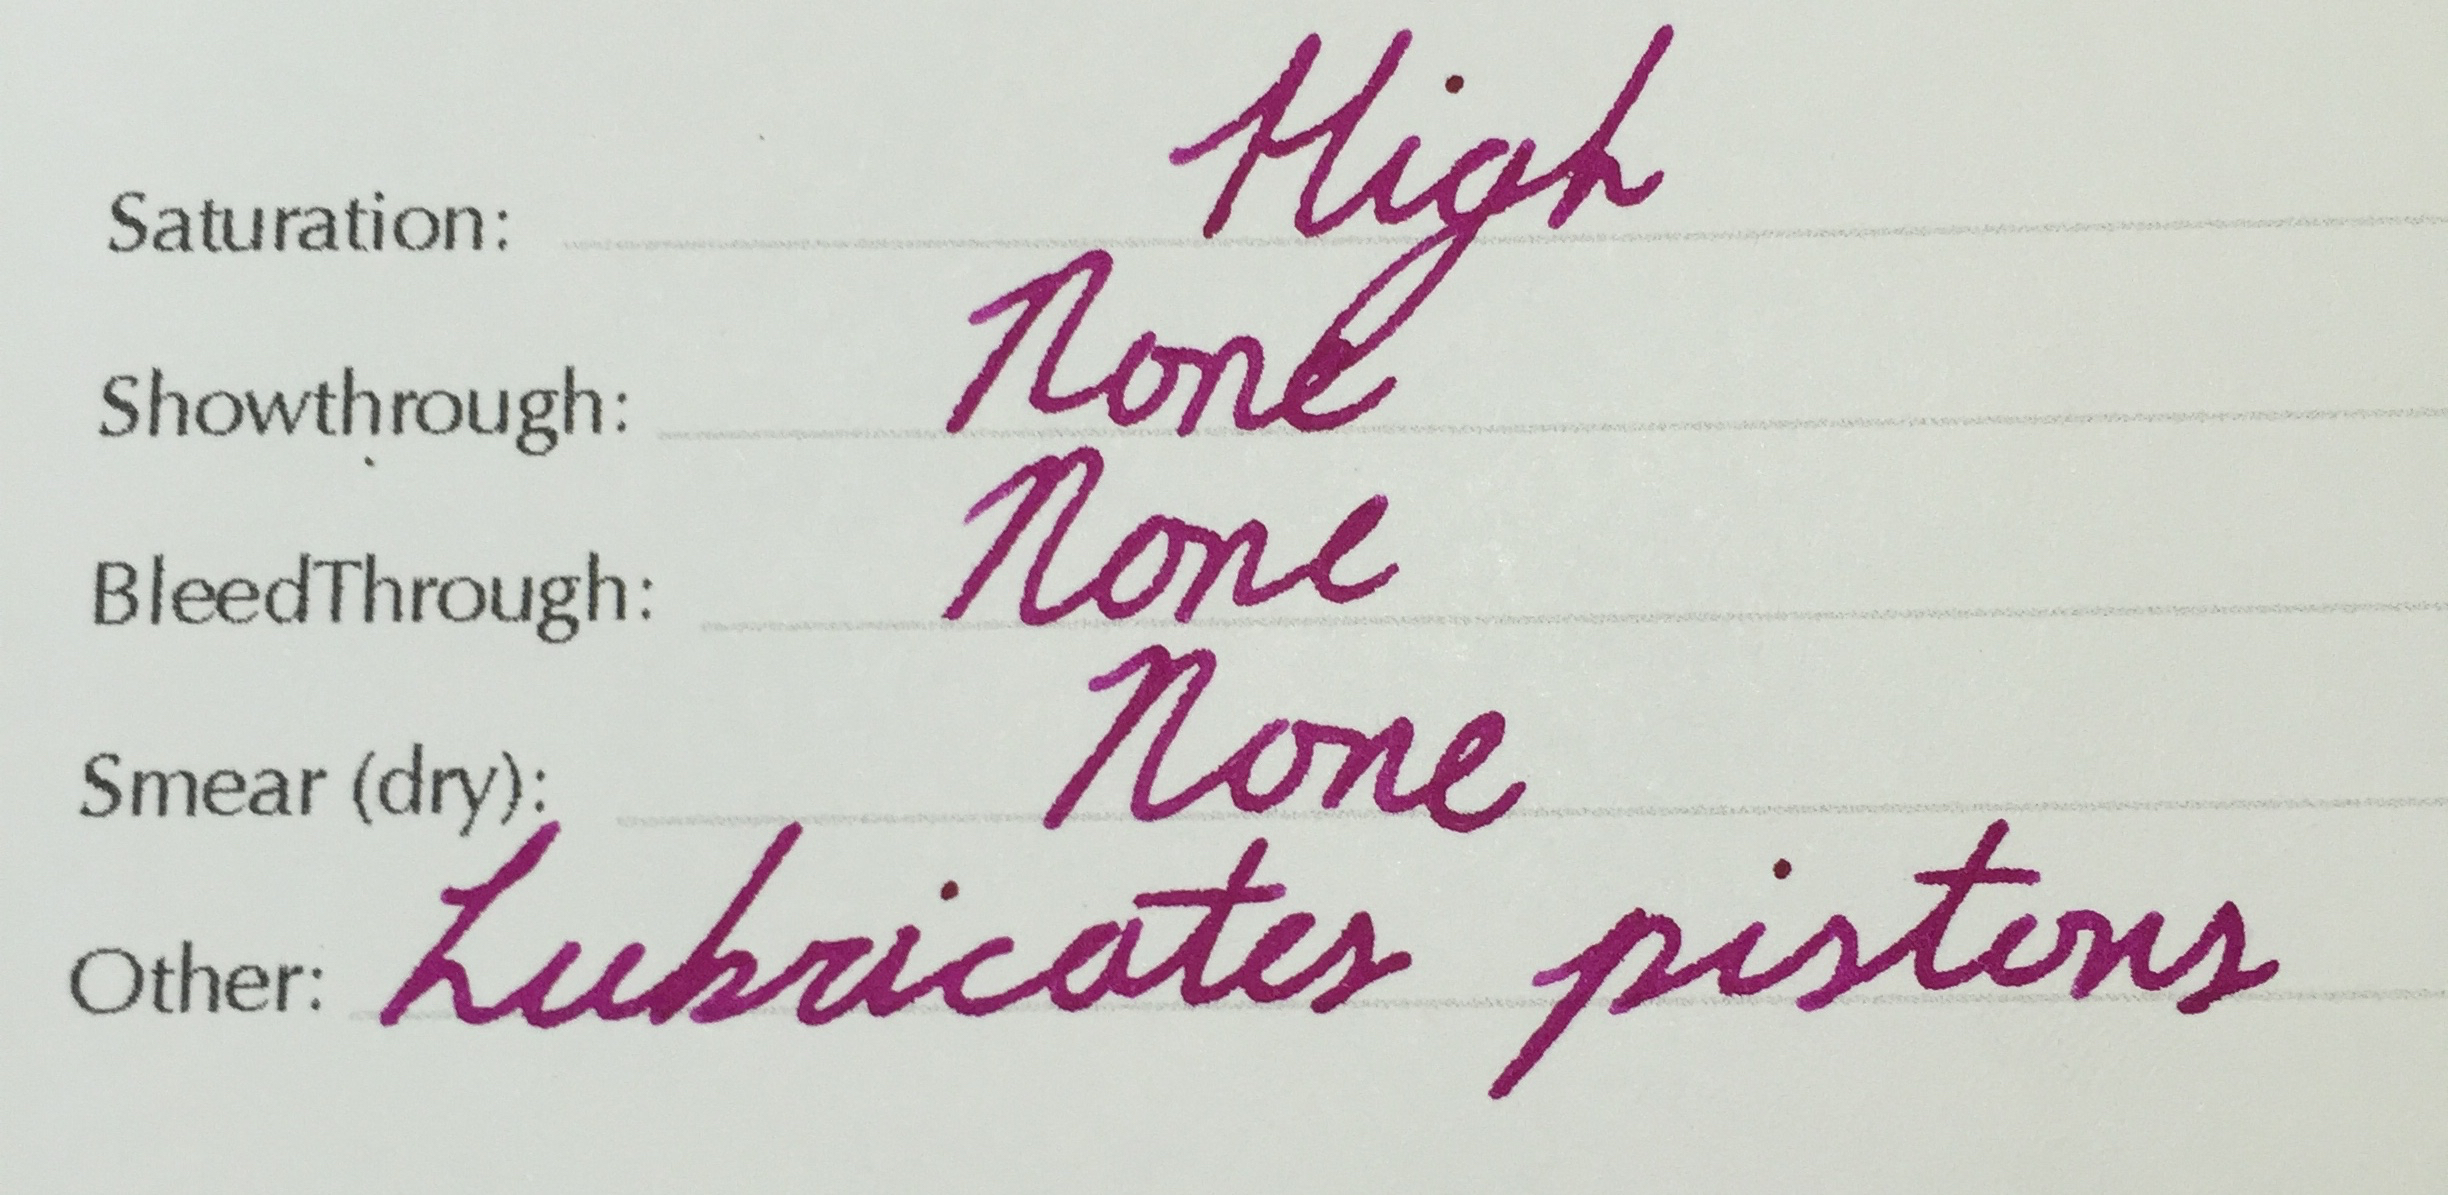 Saturation: High
Showthrough: None
BleedThrough: None
Smear (dry): None
Other: Lubricates pistons